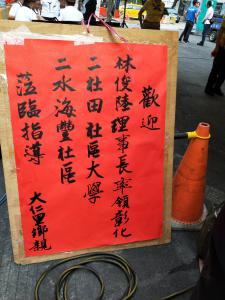 歡迎
林俊陞理事長率領彰化
二社田社區大學
二水海豐社區
蒞臨指導
大仁里鄉親